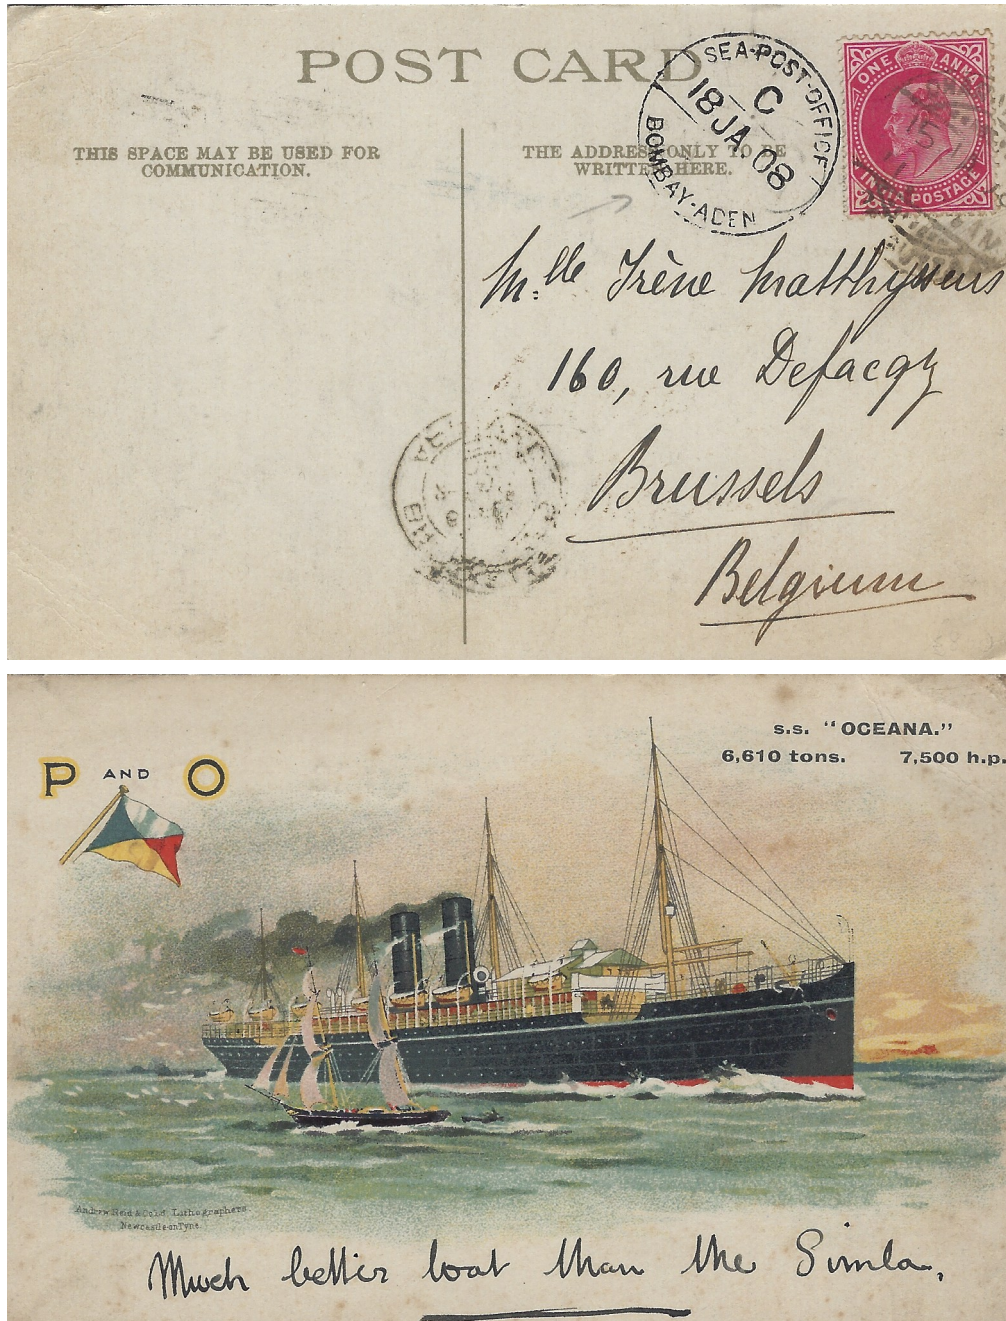 POST CARD
THIS SPACE MAY BE USED FOR
COMMUNICATION.
THE ADDRESS ONLY TO BE
WRITTEN HERE.
SEA·POST·OFFICE
C
18 JA. 08
BOMBAY-ADEN
ONE ANNA
INDIA POSTAGE
M.lle Irène Matthyssens
160, rue Defacqz
Brussels
Belgium
P AND O
s.s. "OCEANA."
6,610 tons. 7,500 h.p.
Andrew Reid & Co Ld Lithographers
Newcastle on Tyne
Much better boat than the Simla.